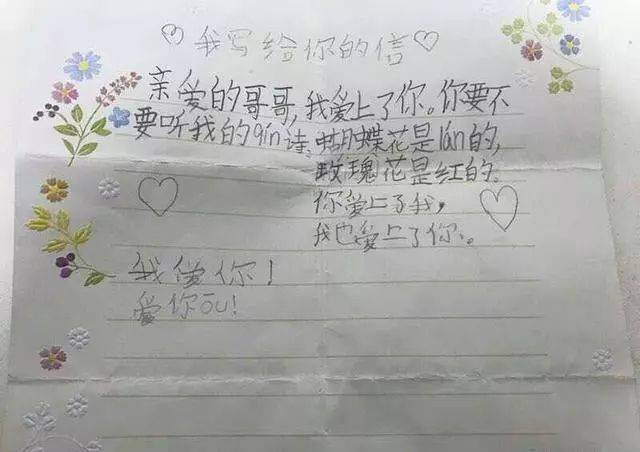 我写给你的信
亲爱的哥哥,我爱上了你。你要不
要听我的qín诗.蝴蝶花是lán的,
玫瑰花是红的.
你爱上了我,
我也爱上了你。
我爱你!
爱你ōu!